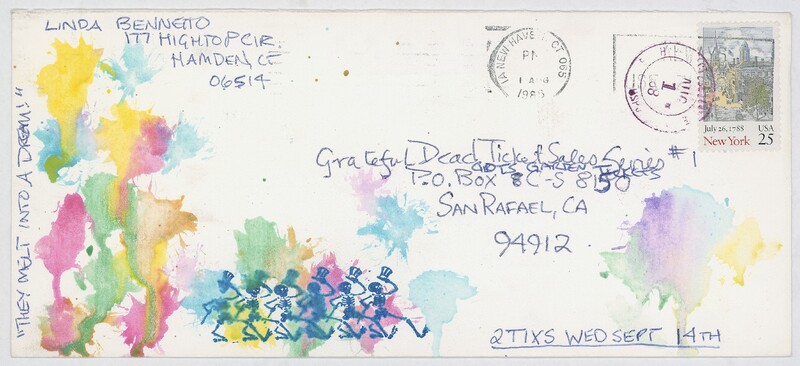 LINDA BENNETTO
177 HIGHTOP CIR.
HAMDEN, CT
06514
NEW HAVEN, CT 065
PM
1 AUG
1988
AUG
1
July 26, 1788 USA
New York 25
Grateful Dead Ticket Sales Series #1
GARDEN TICKETS
P.O. BOX
SAN RAFAEL, CA
94912
"THEY MELT INTO A DREAM!"
2 TIXS WED SEPT 14TH